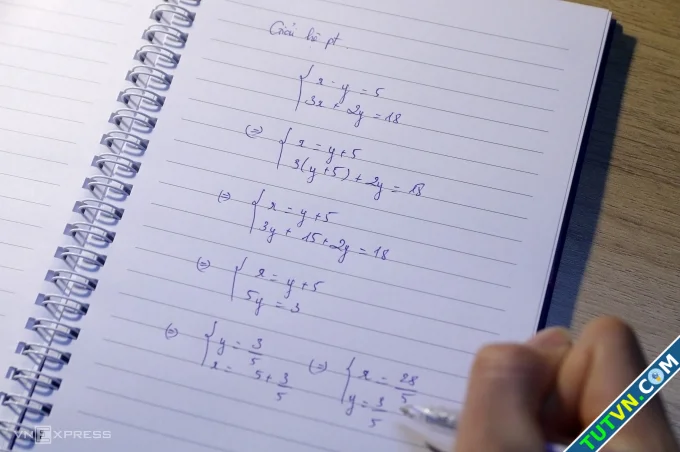 Giải hệ pt.
{ x - y = 5
3x + 2y = 18
(=) { x = y + 5
3(y+5) + 2y = 18
(=) { x = y + 5
3y + 15 + 2y = 18
(=) { x = y + 5
5y = 3
(=) { y = 3/5
x = 5 + 3/5
(=) { x = 28/5
y = 3/5
VNEXPRESS
TUTVN.COM